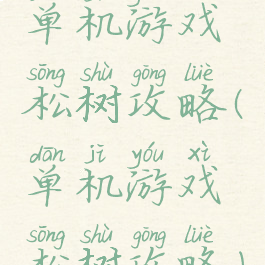 单机游戏
sōng shù gōng lüè
松树攻略(
dān jī yóu xì
单机游戏
sōng shù gōng lüè
松树攻略)